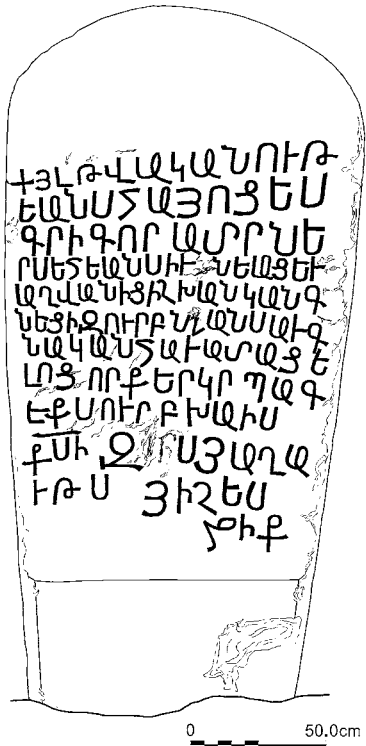 +ՅԼԹՎԱԿԱՆՈՒԹ
ԵԱՆՍՀԱՅՈՑ ԵՍ
ԳՐԻԳՈՐ ԱՄՐՆԵ
ՐՍԵՀԵԱՆՍԻՒ ՆԵԱՑԵՒ
ԱՂՎԱՆԻՑԻՇԽԱՆԿԱՆԳ
ՆԵՑԻԶՈՒՐԲՆՇԱՆՍԱՒԳ
ՆԱԿԱՆՀԱՒԱՏԱՑԵ
ԼՈՑ ՈՐՔ ԵՐԿՐ ՊԱԳ
ԷՔ ՍՈՒՐԲ ԽԱԻՍ
ՔՍԻ Զ ՍՅԱՂԱ
ՒԹՍ ՅԻՇԵՍ
ՋԻՔ
0 50.0cm